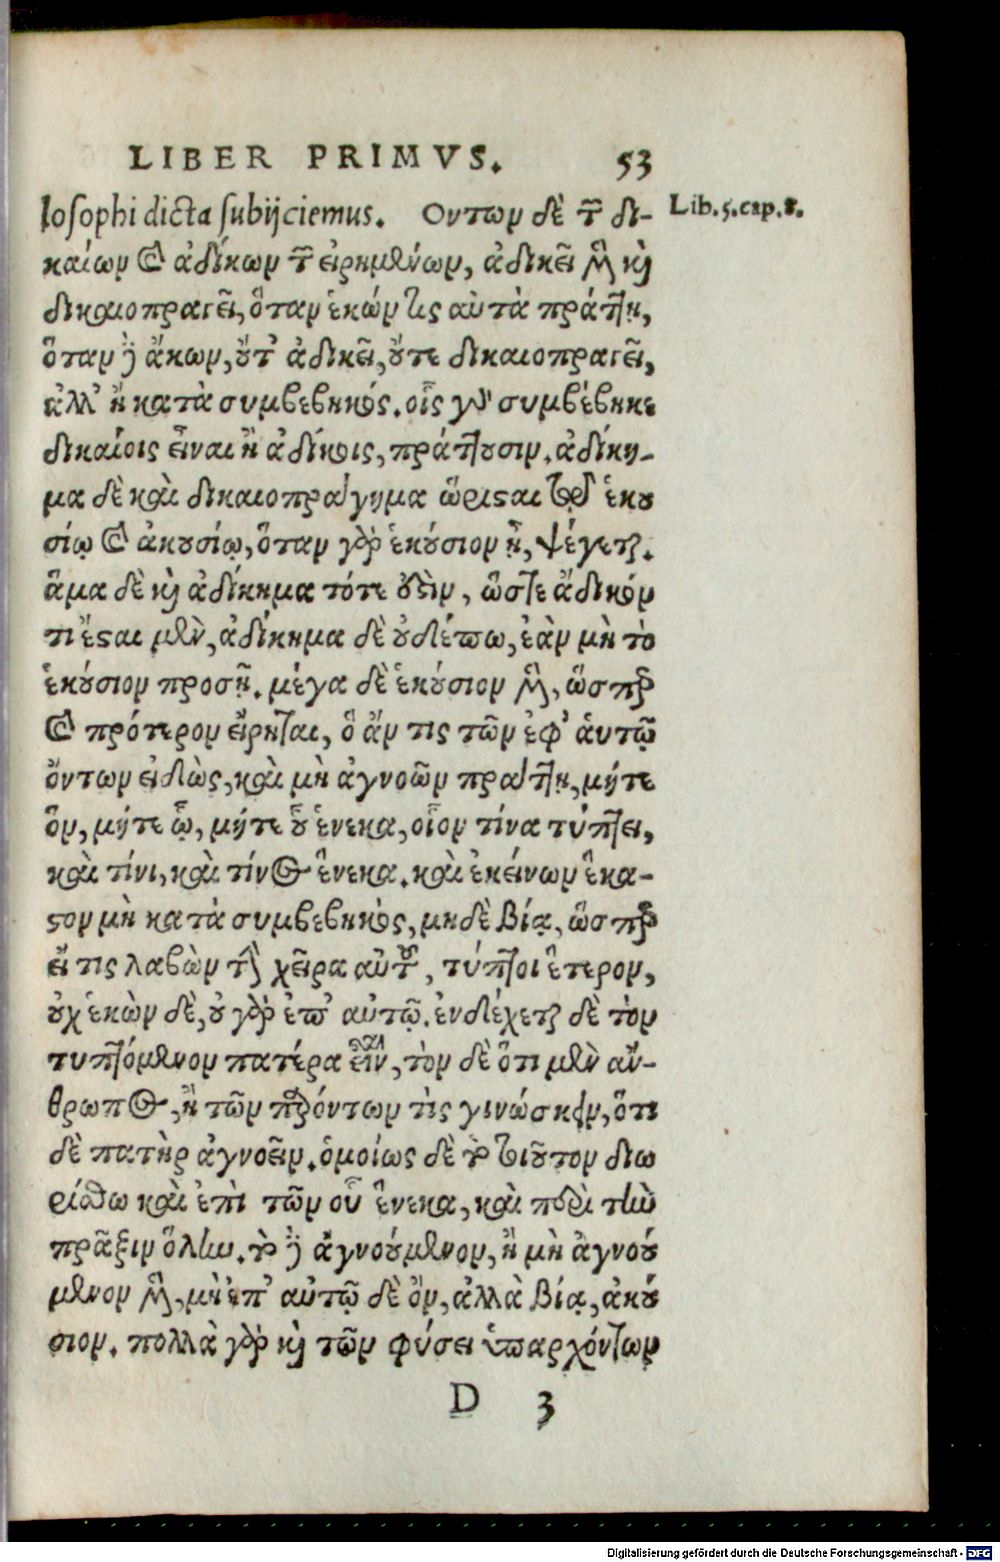 LIBER PRIMVS. 53
losophi dicta subijciemus. Οντων δὲ τῶν δι- Lib. 5. cap. 8.
καίων καὶ ἀδίκων τῶν εἰρημένων, ἀδικεῖ μὲν καὶ
δικαιοπραγεῖ, ὅταν ἑκών τις αὐτὰ πράττῃ,
ὅταν δὲ ἄκων, οὔτ' ἀδικεῖ, οὔτε δικαιοπραγεῖ,
ἀλλ' ἢ κατὰ συμβεβηκός. οἷς γὰρ συμβέβηκε
δικαίοις εἶναι ἢ ἀδίκοις, πράττουσιν. ἀδίκη-
μα δὲ καὶ δικαιοπράγημα ὥρισται τῷ ἑκου
σίῳ καὶ ἀκουσίῳ, ὅταν γὰρ ἑκούσιον ᾖ, ψέγεται.
ἅμα δὲ καὶ ἀδίκημα τότε ἐστὶν, ὥστε ἄδικόν
τι ἔσται μὲν, ἀδίκημα δὲ οὐδέπω, ἐὰν μὴ τὸ
ἑκούσιον προσῇ. μέγα δὲ ἑκούσιον μὲν, ὥσπερ
καὶ πρότερον εἴρηται, ὃ ἄν τις τῶν ἐφ' ἁυτῷ
ὄντων εἰδὼς, καὶ μὴ ἀγνοῶν πράττῃ, μήτε
ὃν, μήτε ᾧ, μήτε οὗ ἕνεκα, οἷον τίνα τύπτει,
καὶ τίνι, καὶ τίνος ἕνεκα. καὶ ἐκείνων ἕκα-
στον μὴ κατὰ συμβεβηκὸς, μηδὲ βίᾳ, ὥσπερ
εἴ τις λαβὼν τὴν χεῖρα αὐτοῦ, τύπτοι ἕτερον,
οὐχ ἑκὼν δὲ, οὐ γὰρ ἐπ' αὐτῷ. ἐνδέχεται δὲ τὸν
τυπτόμενον πατέρα εἶναι, τὸν δὲ ὅτι μὲν ἄν-
θρωπος, ἢ τῶν παρόντων τὶς γινώσκειν, ὅτι
δὲ πατὴρ ἀγνοεῖν. ὁμοίως δὲ τὸ τοιοῦτον διω
ρίσθω καὶ ἐπὶ τῶν οὗ ἕνεκα, καὶ περὶ τὴν
πρᾶξιν ὅλην. τὸ δὲ ἀγνοούμενον, ἢ μὴ ἀγνοού
μενον μὲν, μὴ ἐπ' αὐτῷ δὲ ὂν, ἀλλὰ βίᾳ, ἀκού
σιον. πολλὰ γὰρ καὶ τῶν φύσει ὑπαρχόντων
D 3
Digitalisierung gefördert durch die Deutsche Forschungsgemeinschaft - DFG